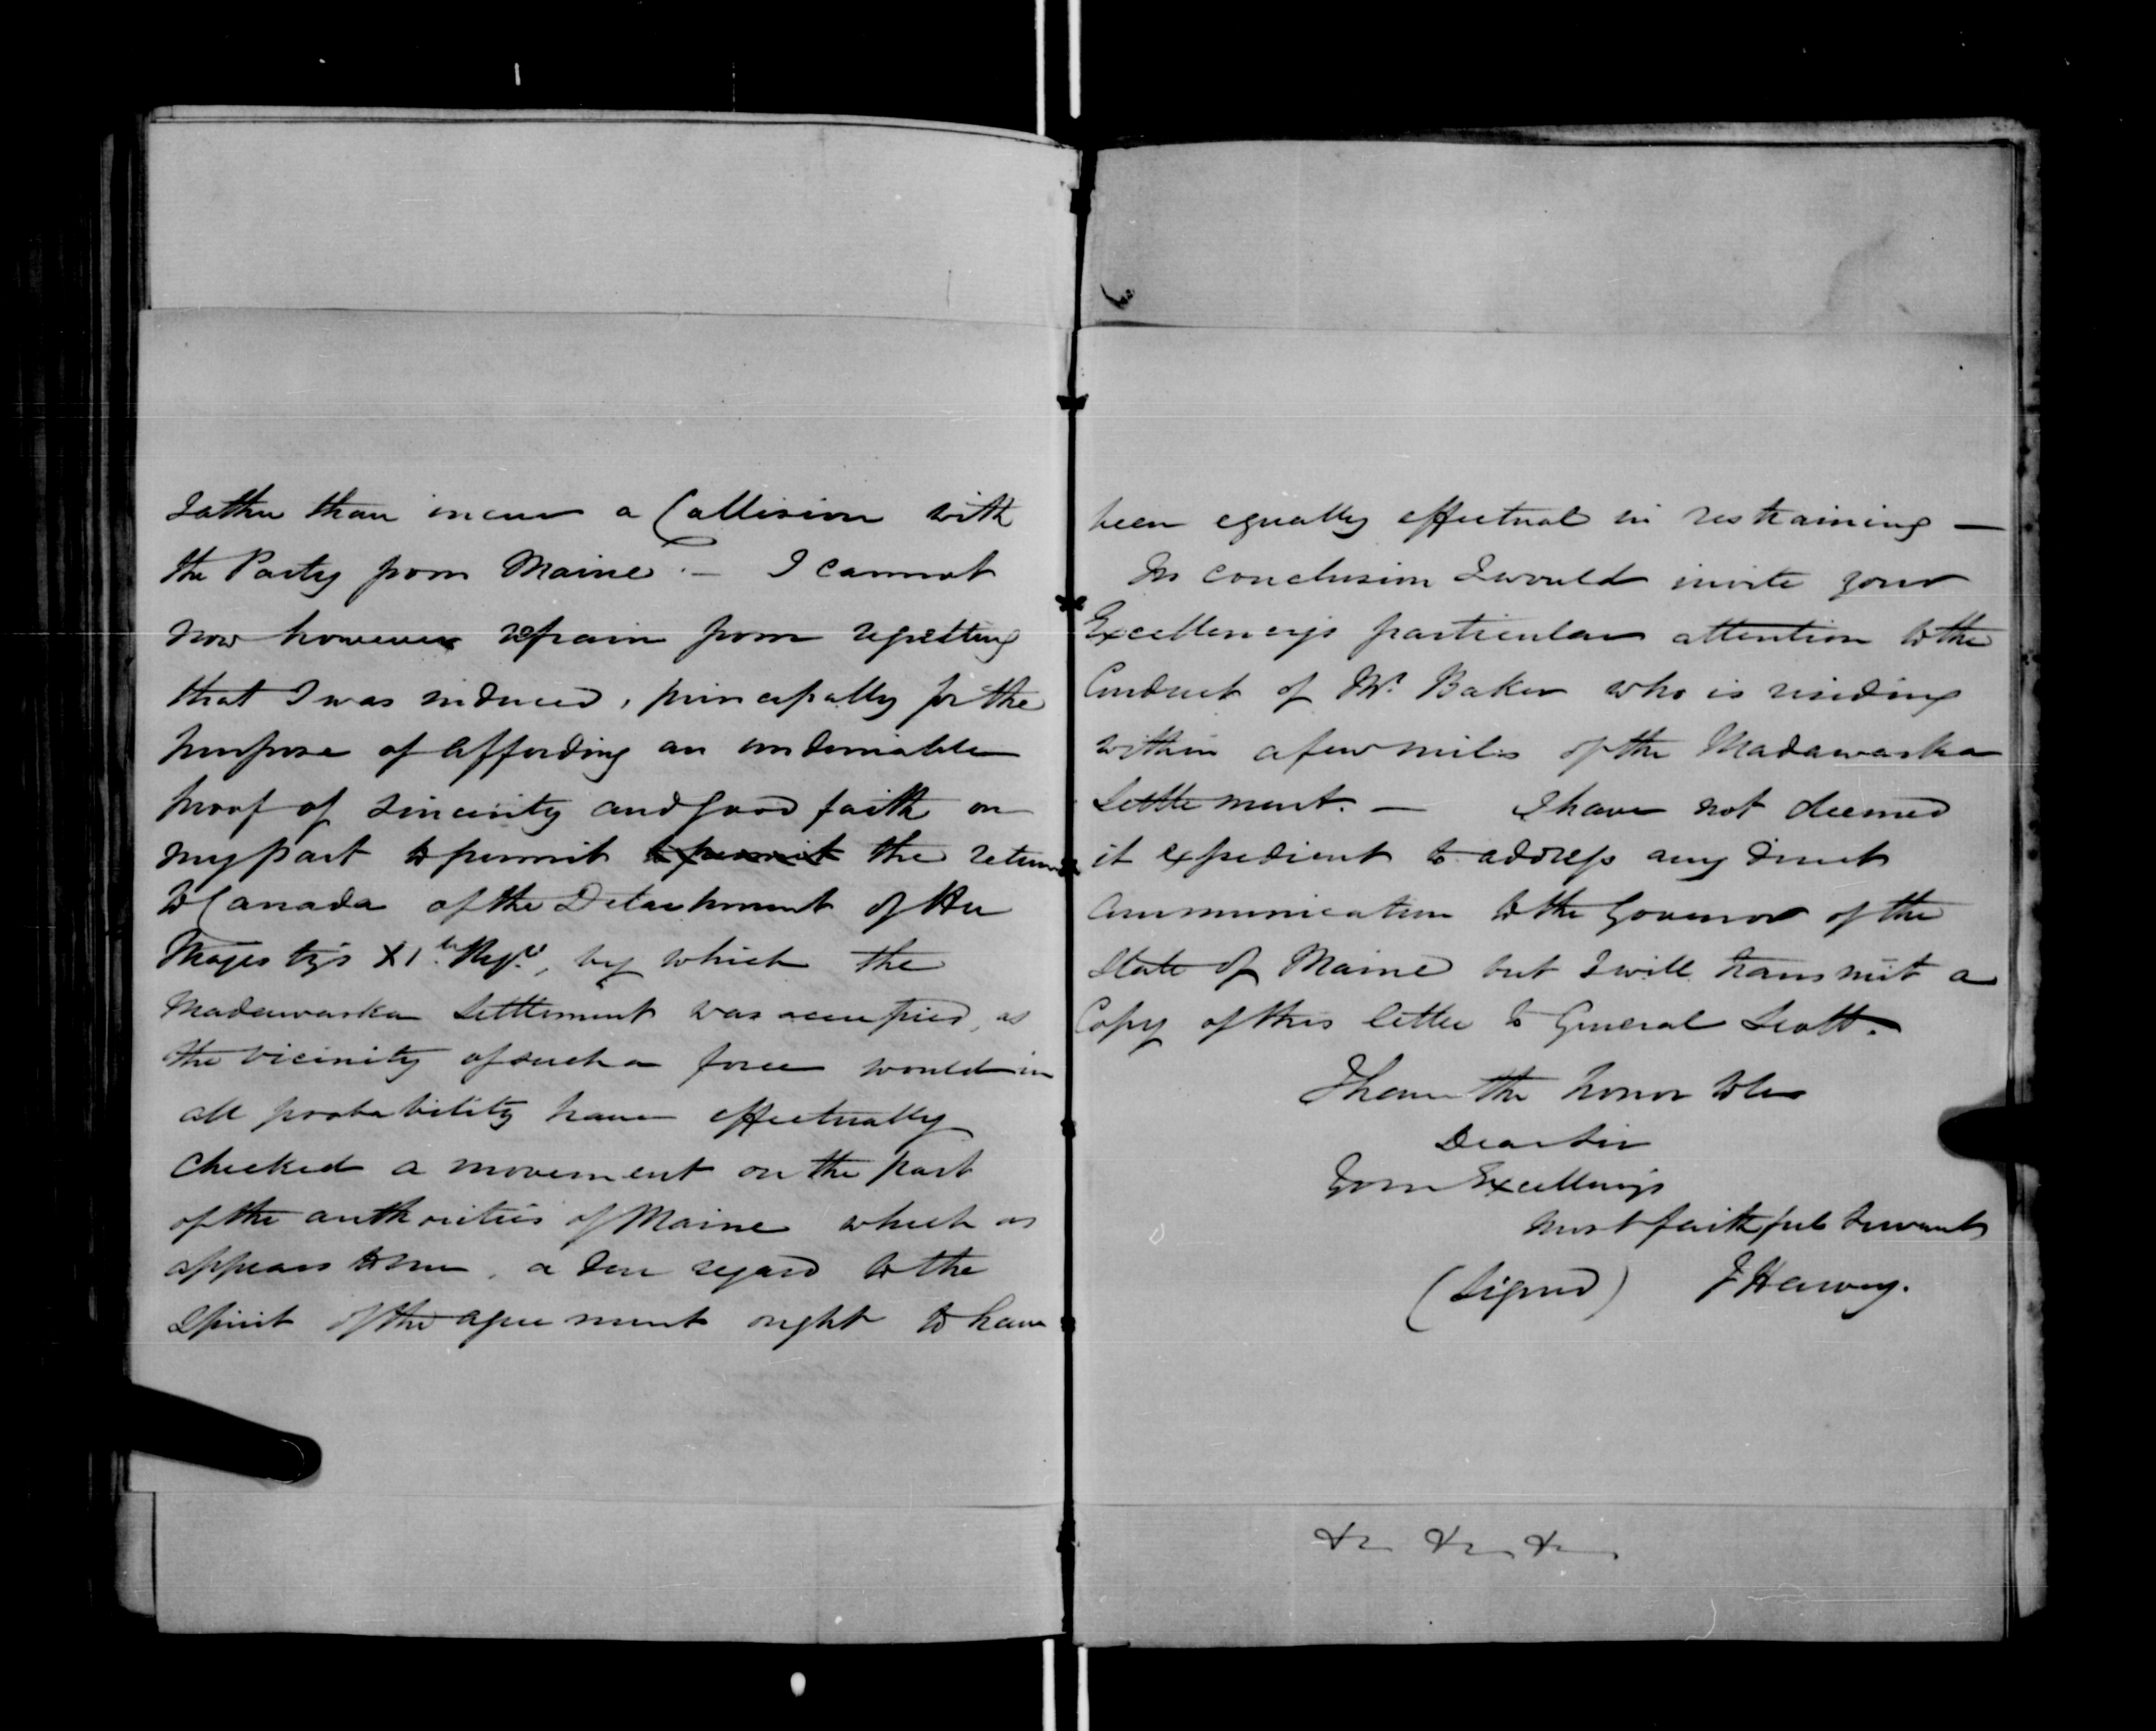 rather than incur a Collision with
the Party from Maine. — I cannot
now however refrain from regretting
that I was induced, principally for the
purpose of affording an undeniable
proof of sincerity and good faith on
my part to permit to permit the return
to Canada of the Detachment of Her
Majesty's XIth Regt., by which the
Madawaska Settlement was occupied, as
the vicinity of such a force would in
all probability have effectually
checked a movement on the part
of the authorities of Maine which as
appears to me, a due regard to the
spirit of the agreement ought to have
been equally effectual in restraining —
In conclusion I would invite your
Excellency's particular attention to the
Conduct of Mr. Baker who is residing
within a few miles of the Madawaska
Settlement. — I have not deemed
it expedient to address any direct
Communication to the Governor of the
State of Maine but I will transmit a
Copy of this letter to General Scott.
I have the honor to be
Dear Sir
Your Excellency's
most faithful Servant
(Signed) J Harvey.
&c &c &c